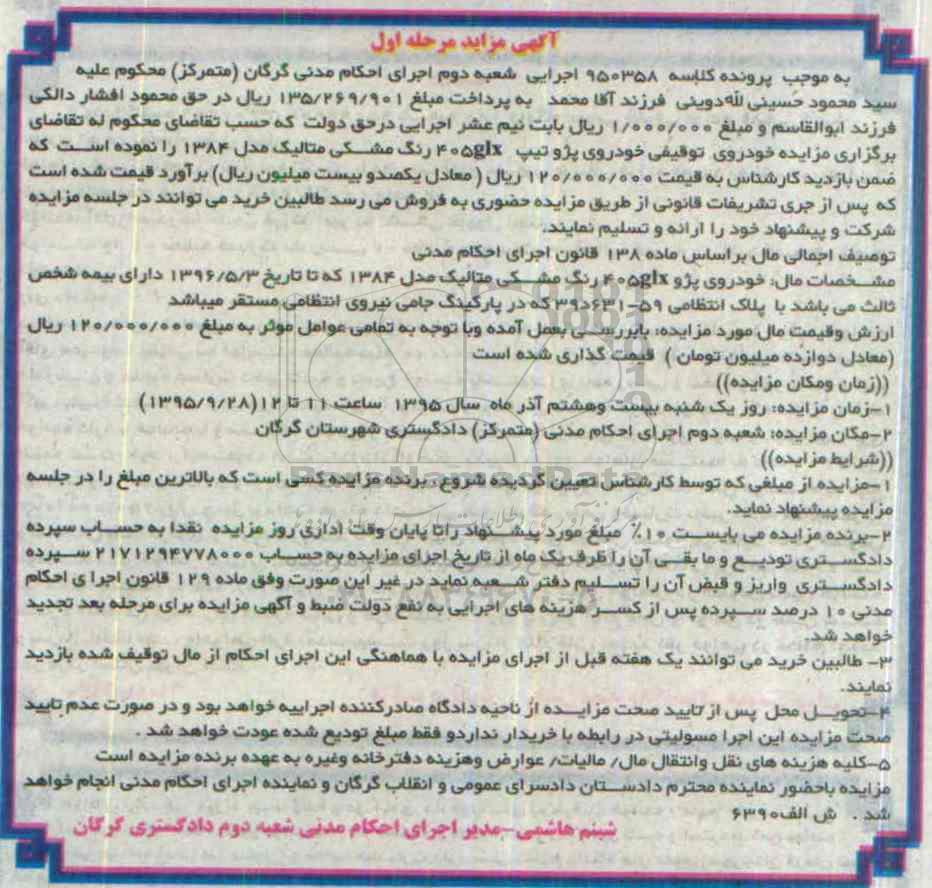 آگهی مزاید مرحله اول
به موجب پرونده کلاسه ۹۵۰۳۵۸ اجرایی شعبه دوم اجرای احکام مدنی گرگان (متمرکز) محکوم علیه
سید محمود حسینی لله‌دوینی فرزند آقا محمد به پرداخت مبلغ ۱۳۵/۲۶۹/۹۰۱ ریال در حق محمود افشار دالکی
فرزند ابوالقاسم و مبلغ ۱/۰۰۰/۰۰۰ ریال بابت نیم عشر اجرایی درحق دولت که حسب تقاضای محکوم له تقاضای
برگزاری مزایده خودروی توقیفی خودروی پژو تیپ ۴۰۵glx رنگ مشکی متالیک مدل ۱۳۸۴ را نموده است که
ضمن بازدید کارشناس به قیمت ۱۲۰/۰۰۰/۰۰۰ ریال (معادل یکصدو بیست میلیون ریال) برآورد قیمت شده است
که پس از جری تشریفات قانونی از طریق مزایده حضوری به فروش می رسد طالبین خرید می توانند در جلسه مزایده
شرکت و پیشنهاد خود را ارائه و تسلیم نمایند.
توصیف اجمالی مال براساس ماده ۱۳۸ قانون اجرای احکام مدنی
مشخصات مال: خودروی پژو ۴۰۵glx رنگ مشکی متالیک مدل ۱۳۸۴ که تا تاریخ ۱۳۹۶/۵/۳ دارای بیمه شخص
ثالث می باشد با پلاک انتظامی ۵۹-۶۳۱د۳۹ که در پارکینگ جامی نیروی انتظامی مستقر میباشد
ارزش وقیمت مال مورد مزایده: بابررسی بعمل آمده وبا توجه به تمامی عوامل موثر به مبلغ ۱۲۰/۰۰۰/۰۰۰ ریال
(معادل دوازده میلیون تومان) قیمت گذاری شده است
((زمان ومکان مزایده))
۱-زمان مزایده: روز یک شنبه بیست وهشتم آذر ماه سال ۱۳۹۵ ساعت ۱۱ تا ۱۲(۱۳۹۵/۹/۲۸)
۲-مکان مزایده: شعبه دوم اجرای احکام مدنی (متمرکز) دادگستری شهرستان گرگان
((شرایط مزایده))
۱-مزایده از مبلغی که توسط کارشناس تعیین گردیده شروع، برنده مزایده کسی است که بالاترین مبلغ را در جلسه
مزایده پیشنهاد نماید.
۲-برنده مزایده می بایست ۱۰٪ مبلغ مورد پیشنهاد راتا پایان وقت اداری روز مزایده نقدا به حساب سپرده
دادگستری تودیع و ما بقی آن را ظرف یک ماه از تاریخ اجرای مزایده به حساب ۲۱۷۱۲۹۴۷۷۸۰۰۰ سپرده
دادگستری واریز و قبض آن را تسلیم دفتر شعبه نماید در غیر این صورت وفق ماده ۱۲۹ قانون اجرا ی احکام
مدنی ۱۰ درصد سپرده پس از کسر هزینه های اجرایی به نفع دولت ضبط و آگهی مزایده برای مرحله بعد تجدید
خواهد شد.
۳- طالبین خرید می توانند یک هفته قبل از اجرای مزایده با هماهنگی این اجرای احکام از مال توقیف شده بازدید
نمایند.
۴-تحویل محل پس از تایید صحت مزایده از ناحیه دادگاه صادرکننده اجراییه خواهد بود و در صورت عدم تایید
صحت مزایده این اجرا مسولیتی در رابطه با خریدار نداردو فقط مبلغ تودیع شده عودت خواهد شد .
۵-کلیه هزینه های نقل وانتقال مال/ مالیات/ عوارض وهزینه دفترخانه وغیره به عهده برنده مزایده است
مزایده باحضور نماینده محترم دادستان دادسرای عمومی و انقلاب گرگان و نماینده اجرای احکام مدنی انجام خواهد
شد . ش الف۶۳۹۰
شبنم هاشمی-مدیر اجرای احکام مدنی شعبه دوم دادگستری گرگان